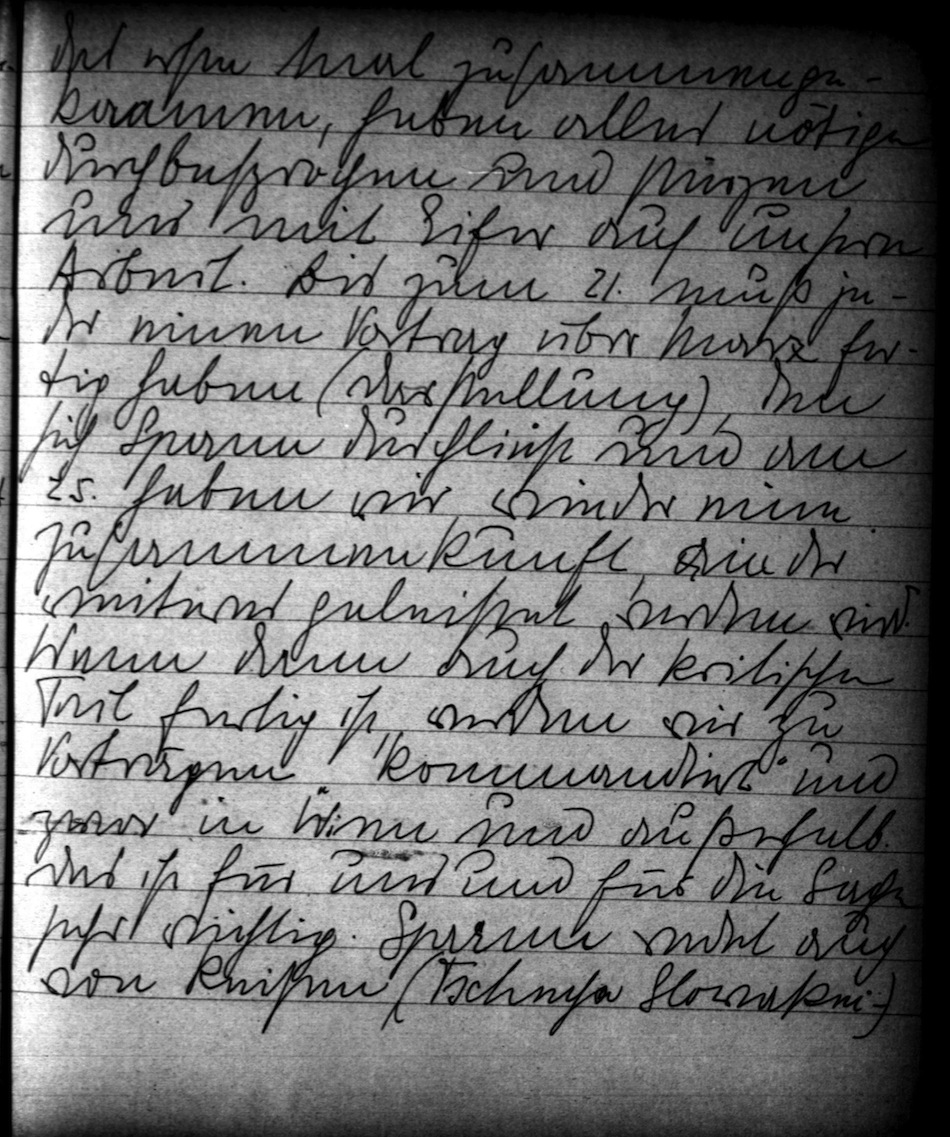 das erste Mal zusammenge-
kommen, haben alles nötige
durchbesprochen und stürzen
uns mit Eifer auf unsere
Arbeit. Bis zum 21. muß je-
der einen Vortrag über Marx fer-
tig haben (Darstellung), den
sich Spann durchliest und am
25. haben wir wieder eine
Zusammenkunft, in der
weiteres geleistet werden wird.
Wenn dann auch der kritische
Teil fertig ist, werden wir zu
Vorträgen "kommandiert" und
zwar in Wien und außerhalb.
Das ist für uns und für die Sache
sehr wichtig. Spann redet auch
von Reisen (Tschecho Slowakei)